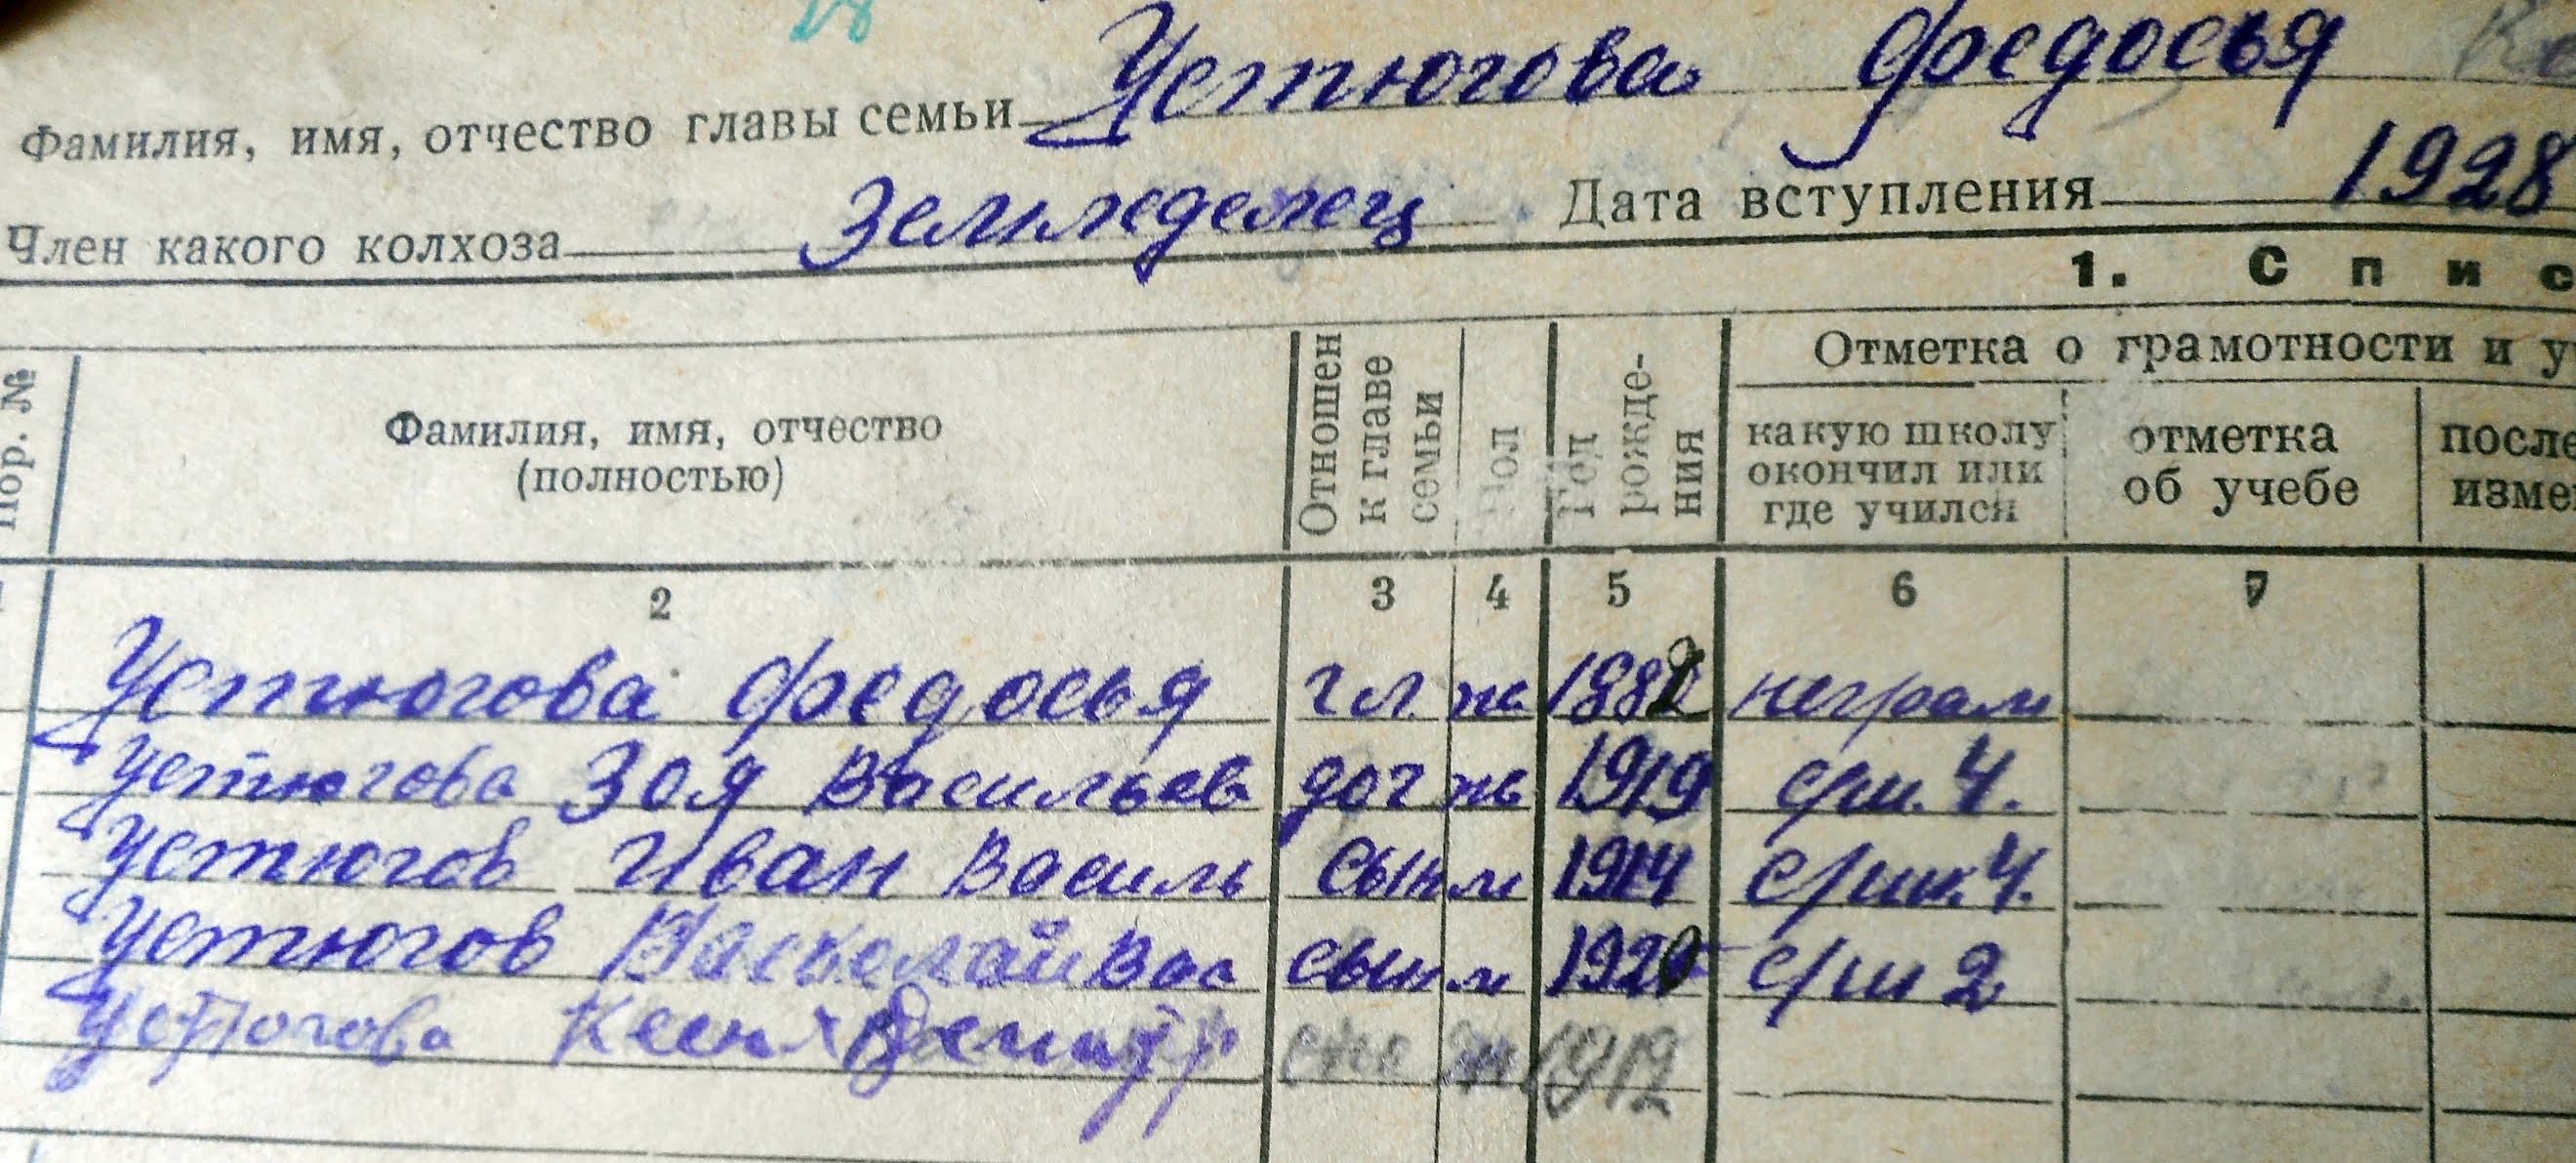 28
Устюгова Федосья
Фамилия, имя, отчество главы семьи
Член какого колхоза Земледелец Дата вступления 1928
1. Спис
Пор. №
Фамилия, имя, отчество (полностью)
Отношен к главе семьи
Пол
Год рождения
Отметка о грамотности и у
какую школу окончил или где учился
отметка об учебе
после изме
2 3 4 5 6 7
Устюгова Федосья гл. ж. 1882 неграм
Устюгова Зоя Васильев доч ж 1919 с/ш. 4.
Устюгов Иван Василь сын м 1914 с/шк. 4.
Устюгов Вас сын м 1920 с/ш 2
Устюгова 1912